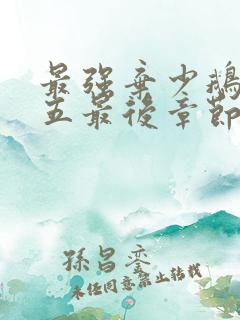 最强弃少鹅
五最後章節
孫昌巒
未经同意禁止转载